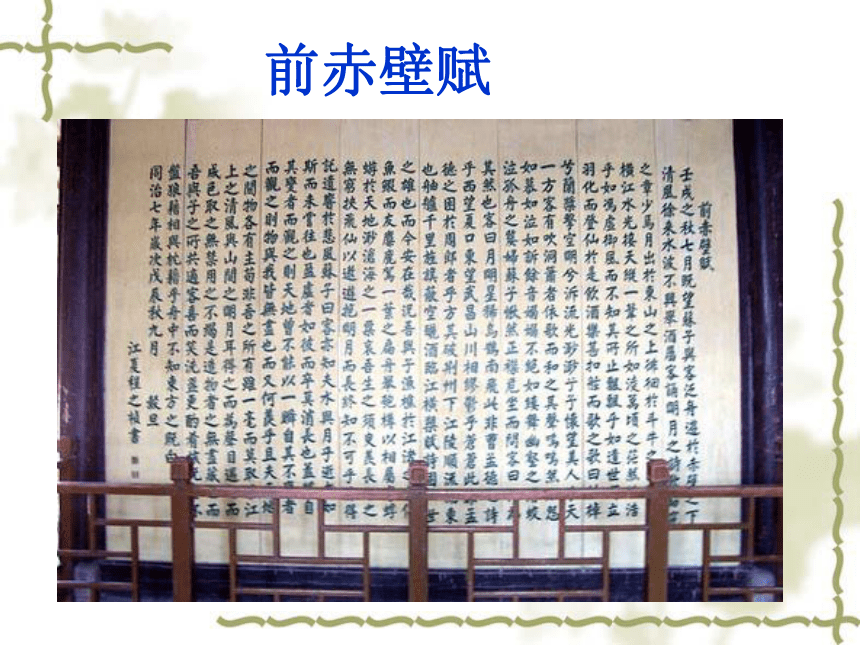 前赤壁赋
前赤壁賦
壬戌之秋七月既望蘇子與客泛舟遊於赤壁之下
清風徐來水波不興舉酒屬客誦明月之詩歌
之章少焉月出於東山之上徘徊於斗牛之
橫江水光接天縱一葦之所如凌萬頃之茫然浩
乎如馮虛御風而不知其所止飄飄乎如遺世立
羽化而登仙於是飲酒樂甚扣舷而歌之歌曰棹
兮蘭槳擊空明兮泝流光渺渺兮予懷望美人天
一方客有吹洞簫者依歌而和之其聲嗚嗚然怨
如慕如泣如訴餘音嫋嫋不絕如縷舞幽壑之蛟
泣孤舟之嫠婦蘇子愀然正襟危坐而問客曰
其然也客曰月明星稀烏鵲南飛此非曹孟德之詩
乎西望夏口東望武昌山川相繆鬱乎蒼蒼此孟
德之困於周郎者乎方其破荊州下江陵順流東
也舳艫千里旌旗蔽空釃酒臨江橫槊賦詩固世
之雄也而今安在哉況吾與子漁樵於江渚之
魚鰕而友麋鹿駕一葉之扁舟舉匏樽以相屬蜉
蝣於天地渺滄海之一粟哀吾生之須臾羨長之
無窮挾飛仙以遨遊抱明月而長終知不可乎得
託遺響於悲風蘇子曰客亦知夫水與月乎逝如
斯而未嘗往也盈虛者如彼而卒莫消長也蓋自
其變者而觀之則天地曾不能以一瞬自其不者
而觀之則物與我皆無盡也而又何羨乎且夫地
之間物各有主苟非吾之所有雖一毫而莫取江
上之清風與山間之明月耳得之而為聲目遇而
成色取之無禁用之不竭是造物者之無盡藏而
吾與子之所共適客喜而笑洗盞更酌肴核杯
盤狼藉相與枕藉乎舟中不知東方之既白
同治七年歲次戊辰秋九月 穀旦
江夏程之楨書